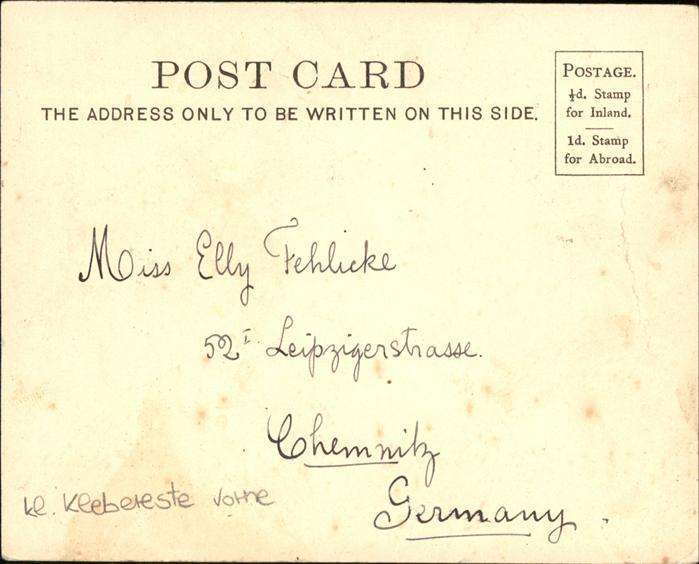 POST CARD
THE ADDRESS ONLY TO BE WRITTEN ON THIS SIDE.
POSTAGE.
½d. Stamp
for Inland.
1d. Stamp
for Abroad.
Miss Elly Fehlicke
52 I Leipzigerstrasse.
Chemnitz
Germany.
kl. Klebereste vorne